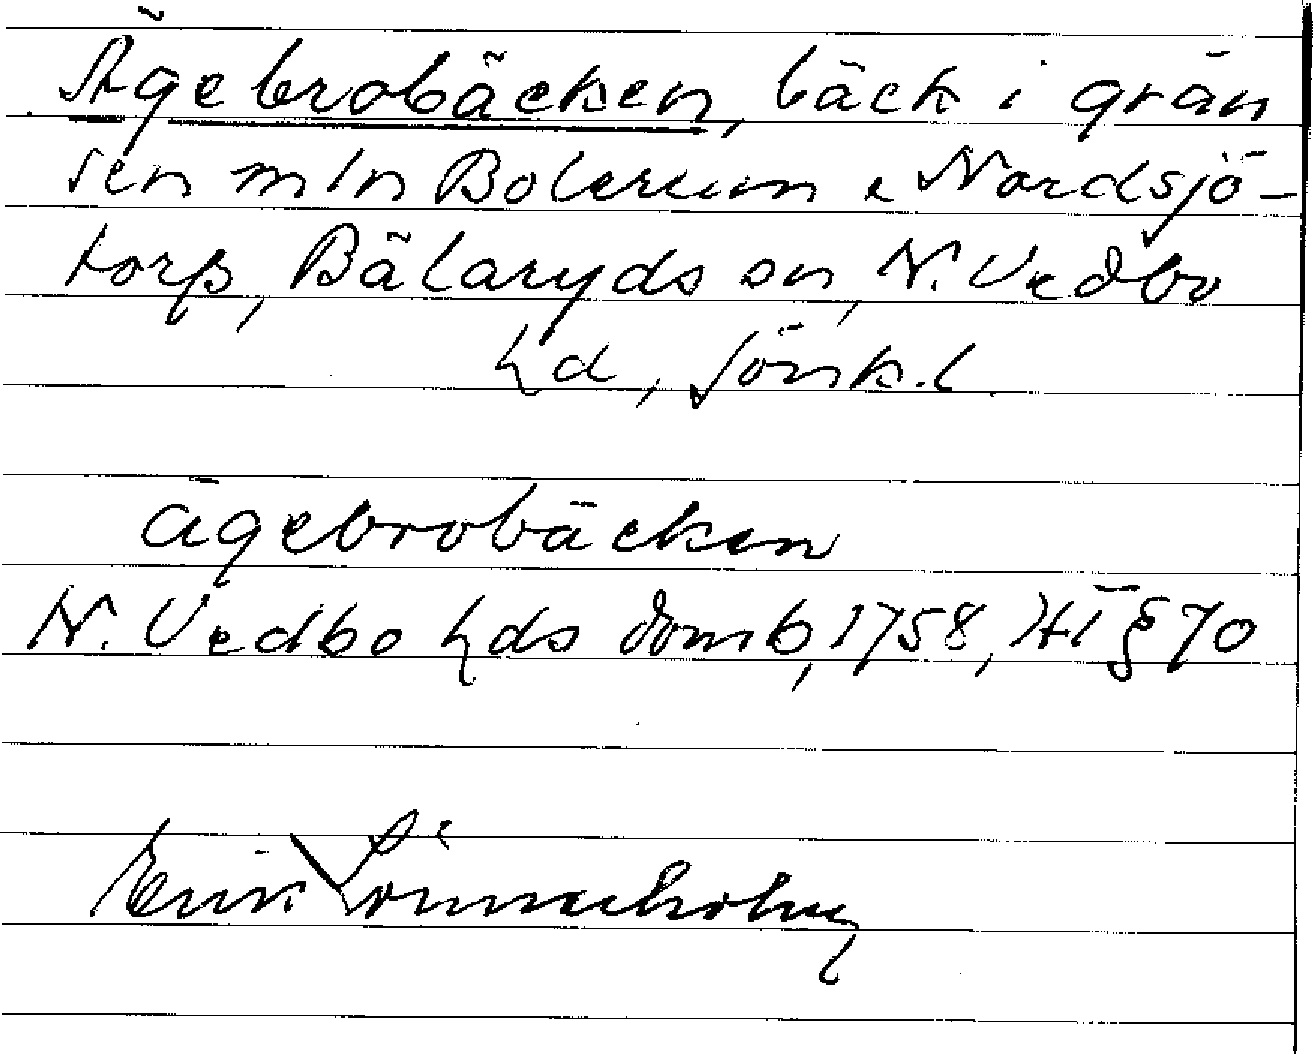 Ägebrobäcken, bäck i grän
sen mln Bolerum o Nordsjö-
torp, Bälaryds sn, N. Vedbo
hd, Jönk. l.
ägebrobäcken
N. Vedbo hds domb, 1758, HT § 70
Erik Lönnerholm